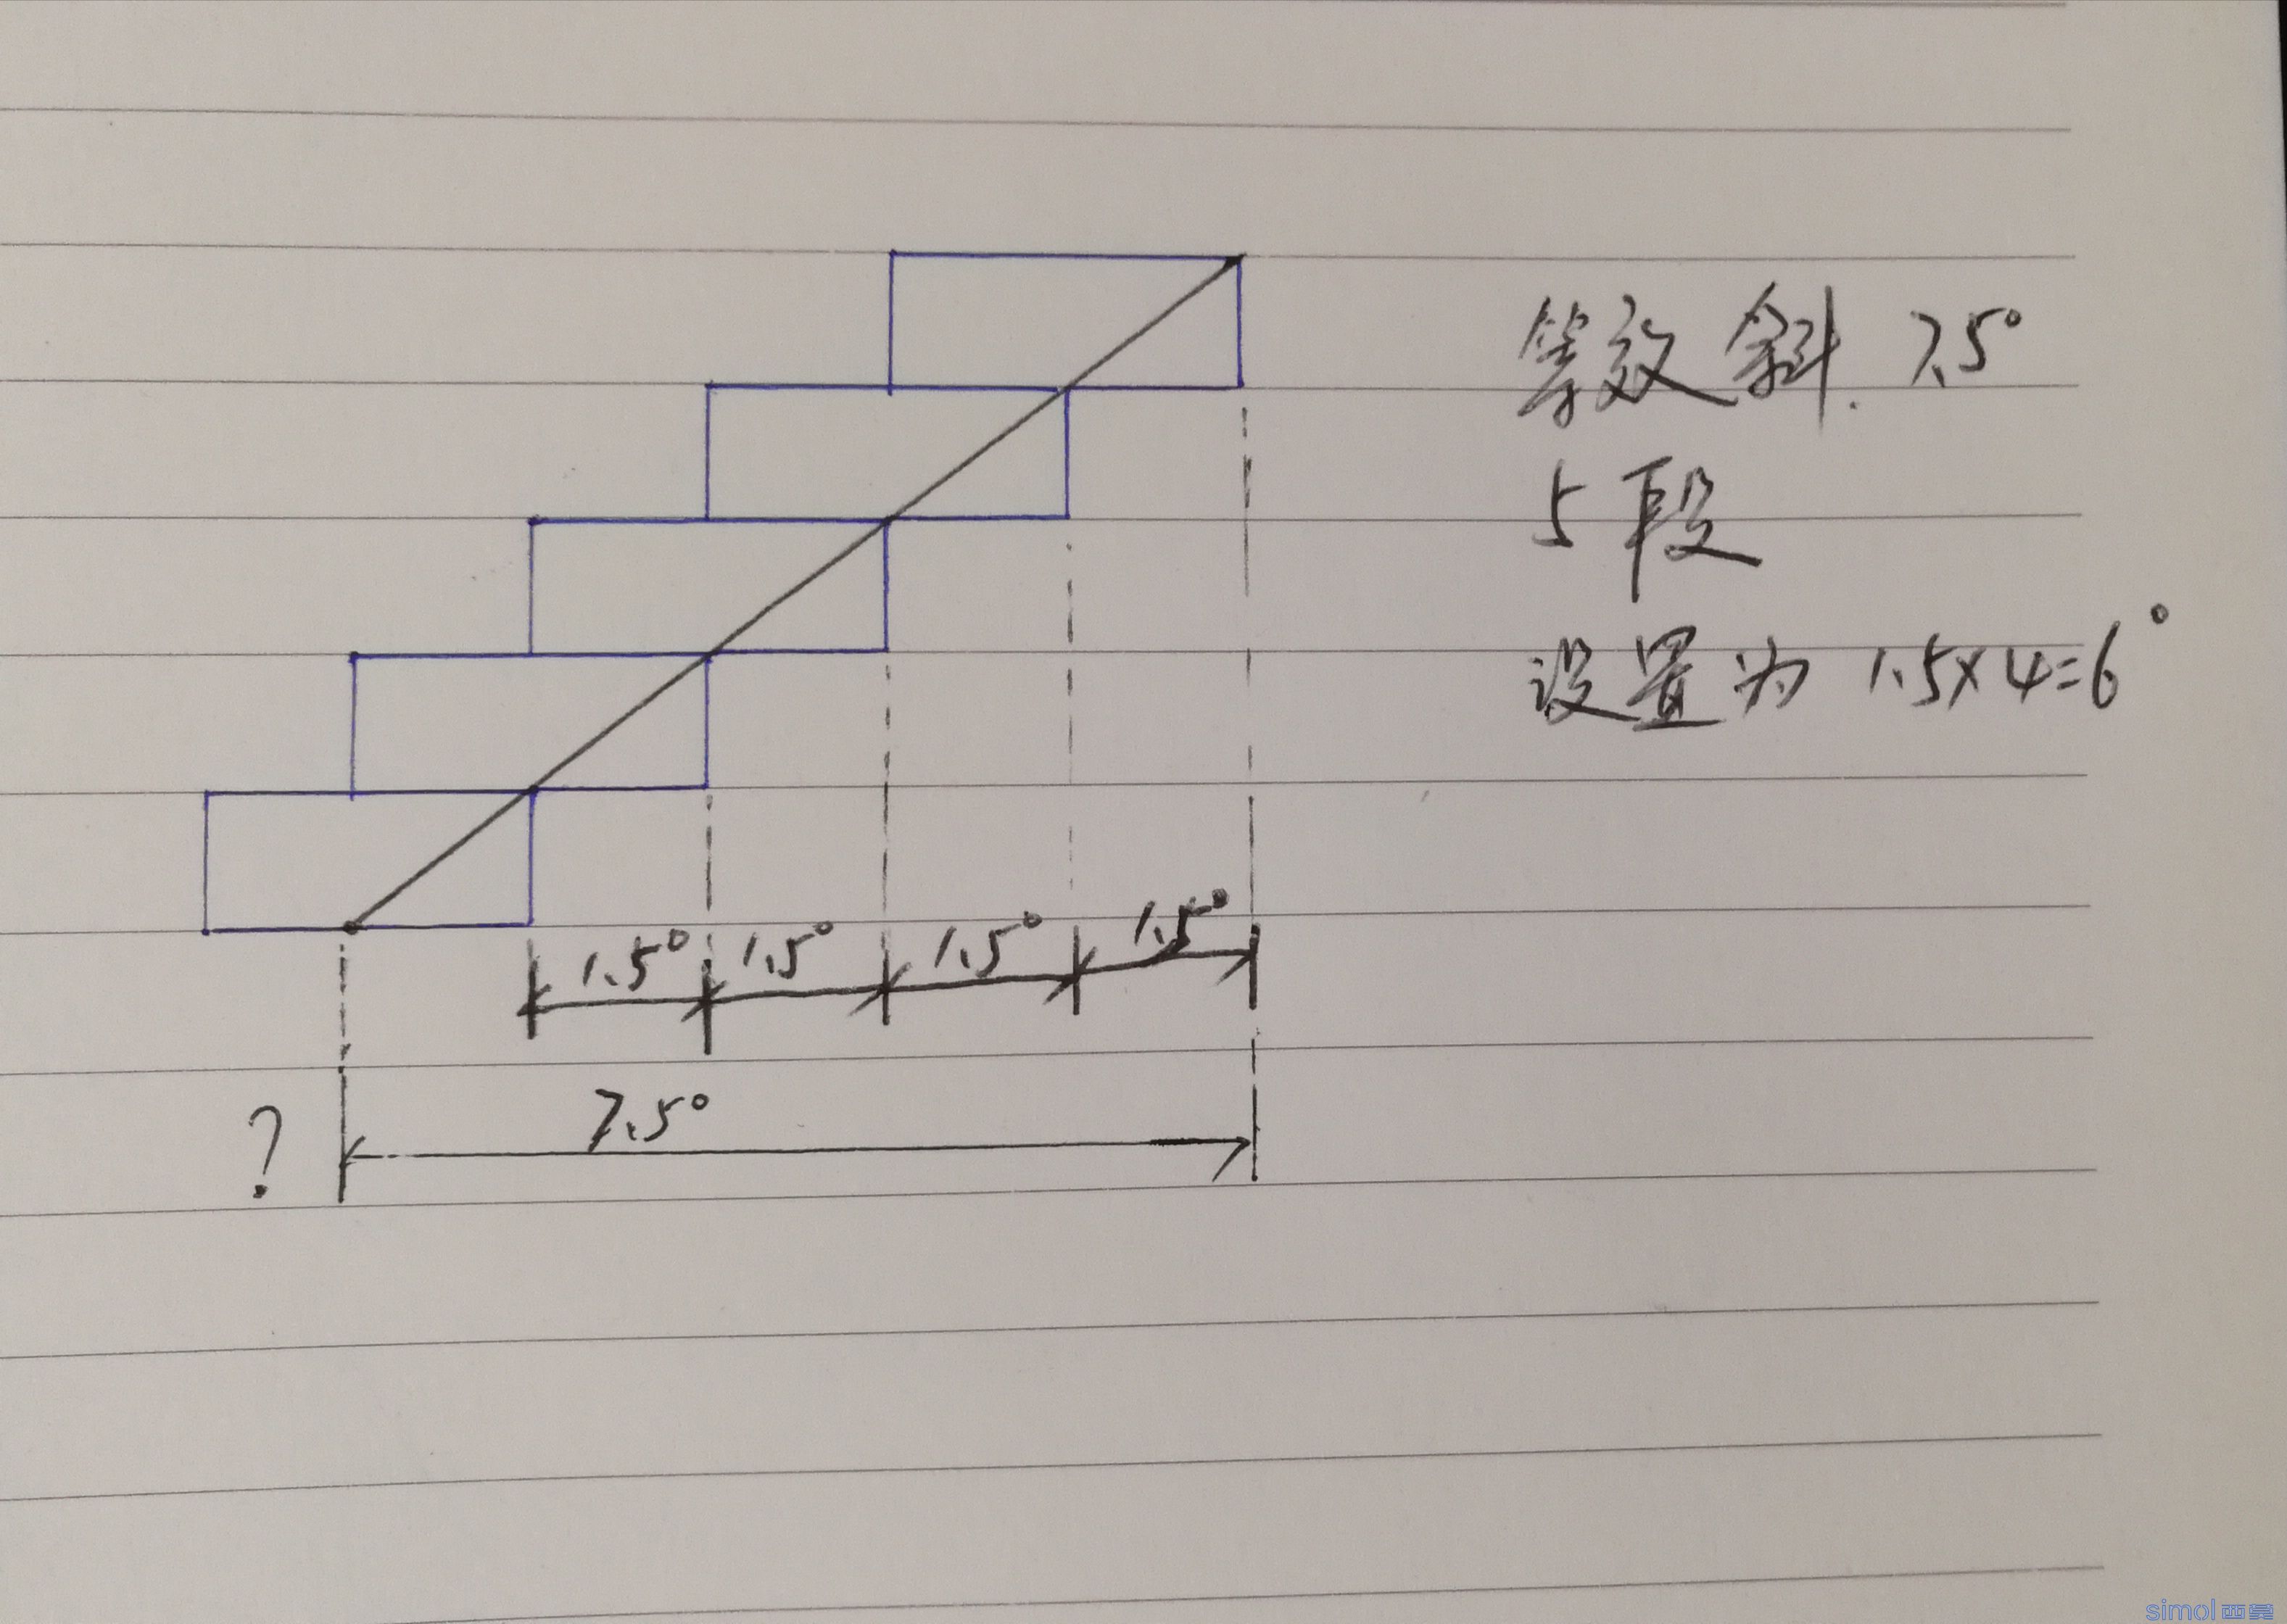 等效斜.7.5°
5段
设置为 1.5×4=6°
1.5° 1.5° 1.5° 1.5°
7.5°
?
simol西莫